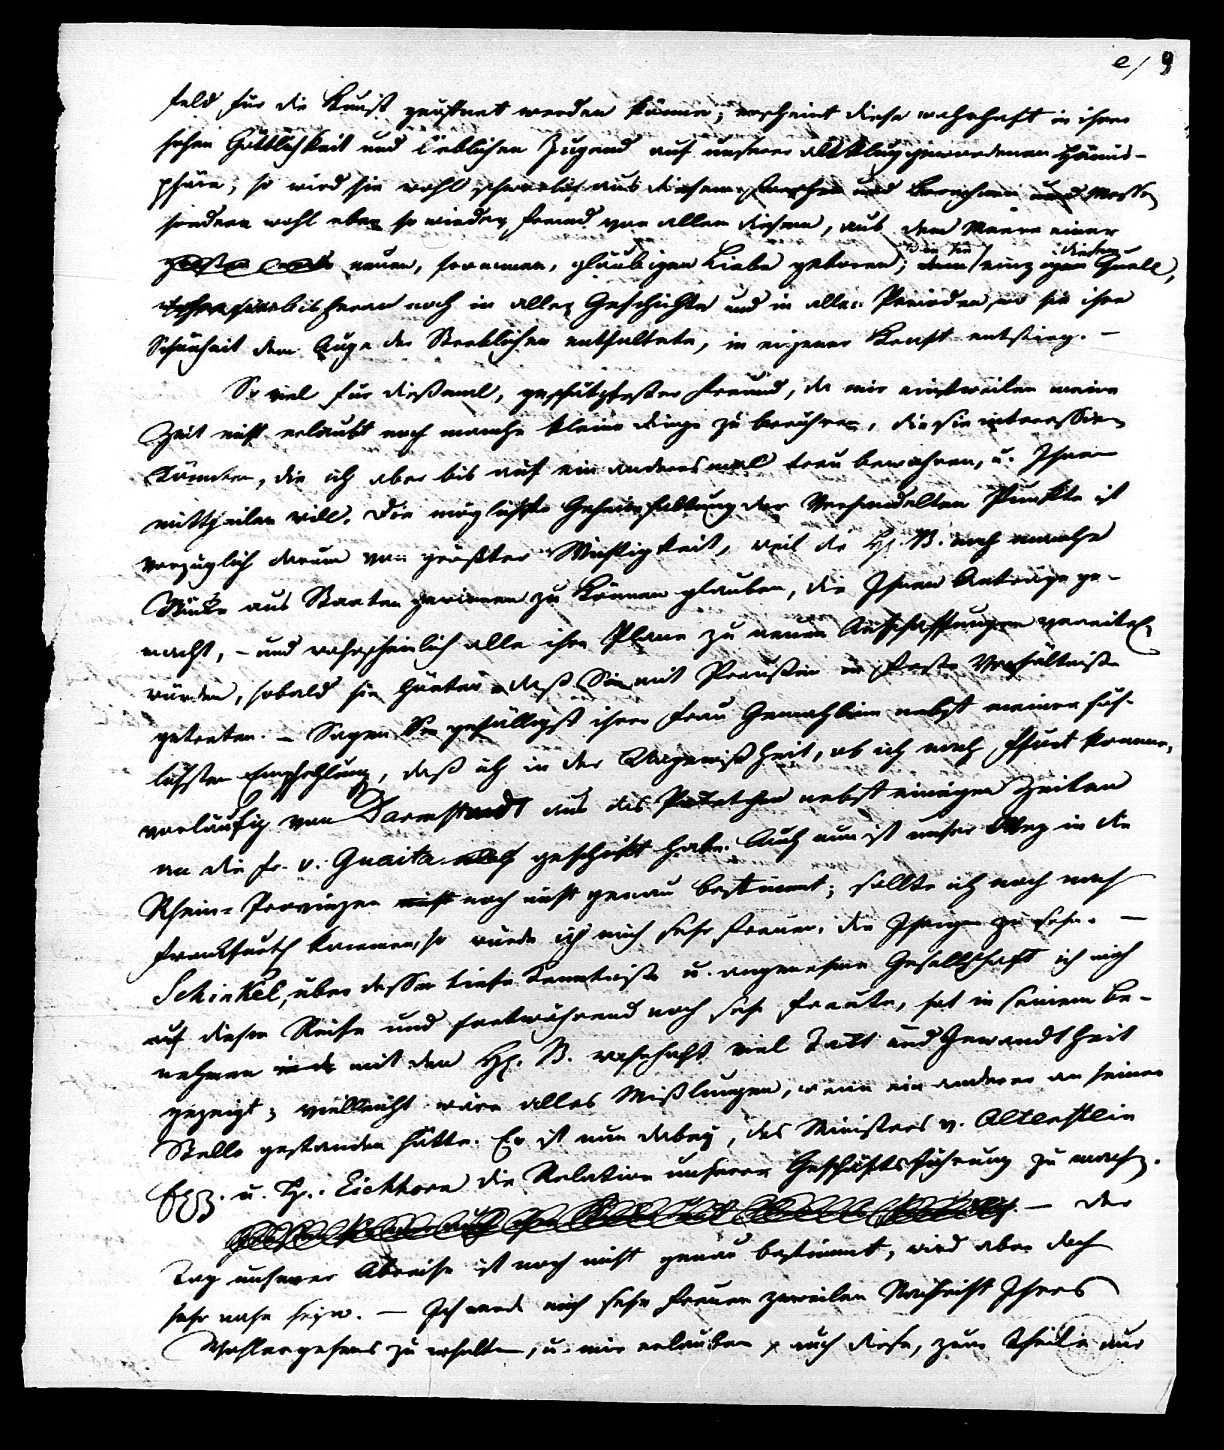 e/ 9
feld für die Kunst geöffnet werden könne; erscheint diese wahrhaft in ihrer
hohen Göttlichkeit und lieblichen Jugend auf unserer altklug gewordenen Hämis-
phäre, so wird sie wohl schwerlich aus diesem und Berechnen und
sondern wohl eben so wieder, fremd von allen diesem, aus dem Meere einer
neuen, frommen, gläubigen Liebe geboren; dem einzigen Quell,
bisheran noch in aller Geschichte und in allen Perioden, wo sie ihre
Schönheit dem Auge der Sterblichen entfaltete, in eigener Kraft entstieg. –
So viel für dießmal, geschätztester Freund, da mir einstweilen meine
Zeit nicht erlaubt noch manche kleine Dinge zu berühren, die sie interessiren
könnten, die ich aber bis auf ein anderesmal treu bewahren, u. Ihnen
mittheilen will. Die möglichste Geheimhaltung der Verhandelten Punkte ist
vorzüglich darum von größter Wichtigkeit, weil die H. B. noch manche
Stücke aus Staaten gewinnen zu können glauben, die Ihnen Anträge ge-
macht, – und wahrscheinlich alle ihre Plane zu neuen Anschaffungen vereitelt
würden, sobald sie hörten daß Sie mit Preußen in feste Verhältniße
getreten. – Sagen Sie gefälligst ihrer Frau Gemahlinn nebst meiner höf-
lichsten Empfehlung, daß ich in der Ungewißheit, ob ich nach Ffurt komme,
vorläufig von Darmstadt aus das Paketchen nebst einigen Zeilen
an die Fr. v. Guaita geschickt habe. Auch nun ist unser Weg in die
Rhein-Provinzen nicht noch nicht genau bestimmt; sollte ich noch nach
Frankfurth kommen, so würde ich mich sehr freuen, die Ihrigen zu sehn. –
Schinkel, über dessen tiefe Kenntniße u. angenehme Gesellschaft ich mich
auf dieser Reise und fortwährend noch sehr freute, hat in seinem Be-
nehmen mit den H. B. wahrhaft viel Takt und Gewandtheit
gezeigt; vielleicht wäre alles Mißlungen, wenn ein anderer an seiner
Stelle gestanden hätte. Er ist nun dabey, des Ministers v. Altenstein
Exz. u. H. Eichhorn die Relation unserer Geschäftsführung zu machen.
– Der
Tag unserer Abreise ist noch nicht genau bestimmt, wird aber doch
sehr nahe seyn. – Ich werde mich sehr freuen zuweilen Nachricht Ihres
Wohlergehens zu erhalten, u. mir erlauben auch diese, zum Theil aus